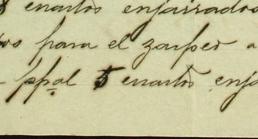 8 cuartos enjairados
para el zarpeo a
ppal 5 cuartos enja